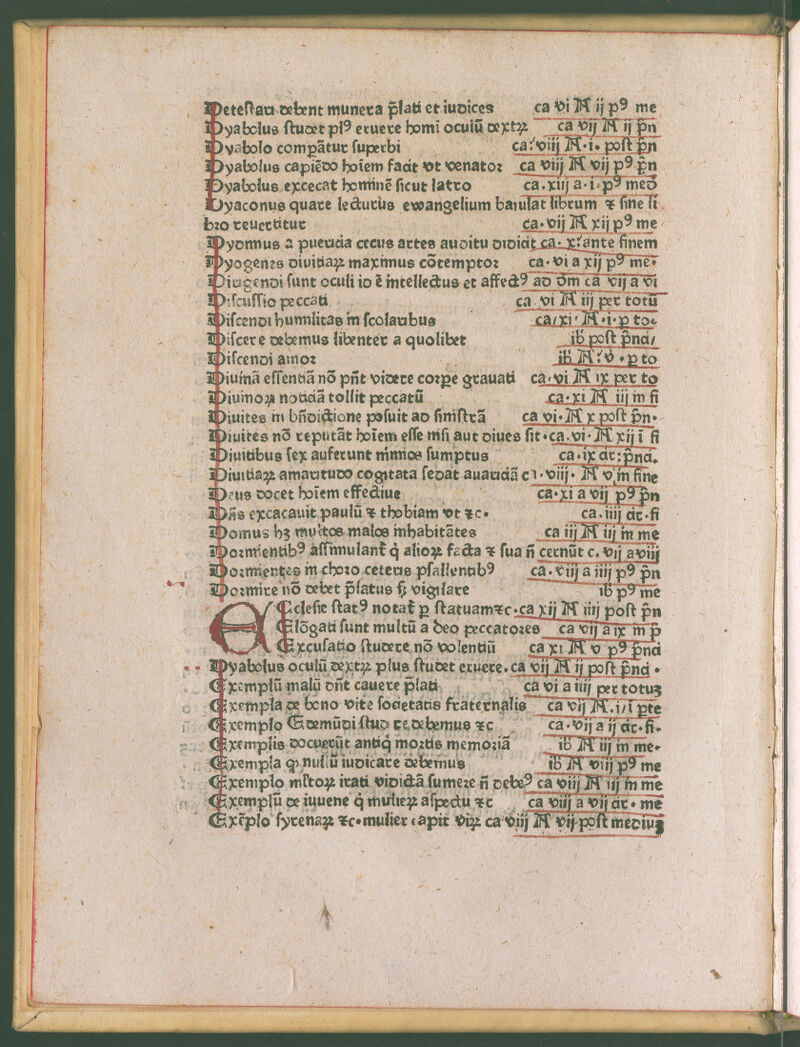 Detestari debent munera p̃lati et iudices ca vi A ij pꝰ me
Dyabolus studet plꝰ eruere homī oculū dextꝝ ca vij A ij p̃n
Dyabolo compãtur superbi ca. viij A. i. post p̃n
Dyabolus capiēdo hoīem facit vt venator ca viij A vij pꝰ p̃n
Dyabolus excecat hominē sicut latro ca. xiij a. i. pꝰ med̄
Dyaconus quare lecturus ewangelium baiulat librum ⁊ sine li
bro reuertitur ca. vij A xij pꝰ me
Dydimus a puericia cecus artes auditu didicit ca. x. ante finem
Dyogenes diuitiaꝝ maximus cōtemptor ca. vi a xij pꝰ me.
Dirigendi sunt oculi id ē intellectus et affectꝰ ad dm̄ ca vij a vi
Discussio peccati ca. vi A iij per totū
Discendi humilitas in scolaribus ca. xi. A. i. p to.
Discere debemus libenter a quolibet ib̄ post p̃nci.
Discendi amor ib̄ A. v. p to
Diuinā essentiā nō pn̄t videre corpe grauati ca. vi A ix per to
Diuinoꝝ noticiā tollit peccatū ca. xi A iij in fi
Diuites in bn̄dictione posuit ad sinistrā ca vi. A x post p̃n.
Diuites nō reputāt hoīem esse nisi aut diues sit. ca. vi. A xij ī fi
Diuitibus sex auferunt inimice sumptus ca. ix ac: p̃nci.
Diuitiaꝝ amaritudo cogitata sedat auariciā ca. viij. A v in fine
Deus docet hoīem effectiue ca. xi a vij pꝰ p̃n
Dn̄s excacauit paulū ⁊ thobiam vt ⁊c. ca. iiij ac. fi
Domus hꝫ multos malos inhabitātes ca iij A iij in me
Dormientibꝰ assimulant̄ q̇ alioꝝ facta ⁊ sua n̄ cernūt c. vij a viij
Dormientes in choro ceteris psallentibꝰ ca. viij a iiij pꝰ p̃n
Dormire nō debet p̃latus sꝫ vigilare ib̄ pꝰ me
Ecclesie statꝰ notat̄ p statuam ⁊c. ca xij A iiij post p̃n
Elōgati sunt multū a deo peccatores ca vij a ix in p̃
Excusatio studere nō volentiū ca xi A v pꝰ p̃nci
Dyabolus oculū dextꝝ plus studet eruere. ca vij A ij post p̃nci.
Exemplū malū dn̄t cauere p̃lati ca vi a iiij per totuꝫ
Exempla de bono vite societatis fraternalis ca vij A. i. ī p̃te
Exemplo Edemūdi studere debemus ⁊c ca. vij a ij ac. fi.
Exemplis docuerūt antiq̇ mortis memoriā ib̄ A iij in me.
Exempla ꝙ nullū iudicare debemus ib̄ A viij pꝰ me
Exemplo mltoꝝ irati vidictā sumere n̄ debeꝰ ca viij A iij in me
Exemplū de iuuene q̇ mulieꝝ aspectu ⁊c ca viij a vij ac. me
Exēplo syrenaꝝ ⁊c. mulier capit viꝝ ca viij A vij post mediuꝫ